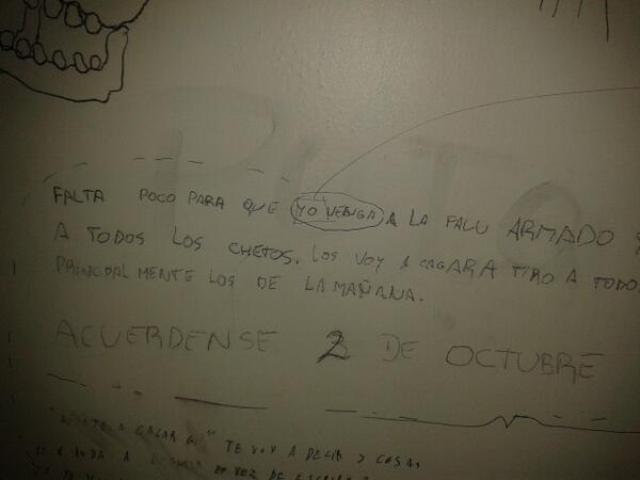 FALTA POCO PARA QUE YO VENGA A LA FACU ARMADO
A TODOS LOS CHETOS. LOS VOY A CAGAR A TIRO A TODO
PRINCIPALMENTE LOS DE LA MAÑANA.
ACUERDENSE 2 DE OCTUBRE
TE VOY A DECIR 2 COSAS